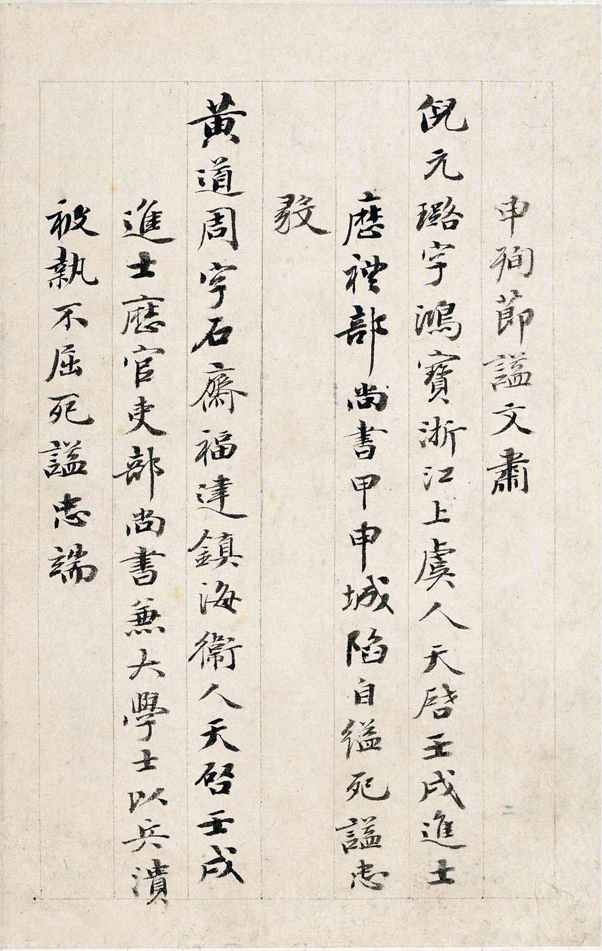 申殉節謚文肅
倪元璐字鴻寶浙江上虞人天啓壬戌進士
歷禮部尚書甲申城陷自縊死謚忠
黃道周字石齋福建鎮海衛人天啓壬戌
進士歷官吏部尚書兼大學士以兵潰
被執不屈死謚忠端